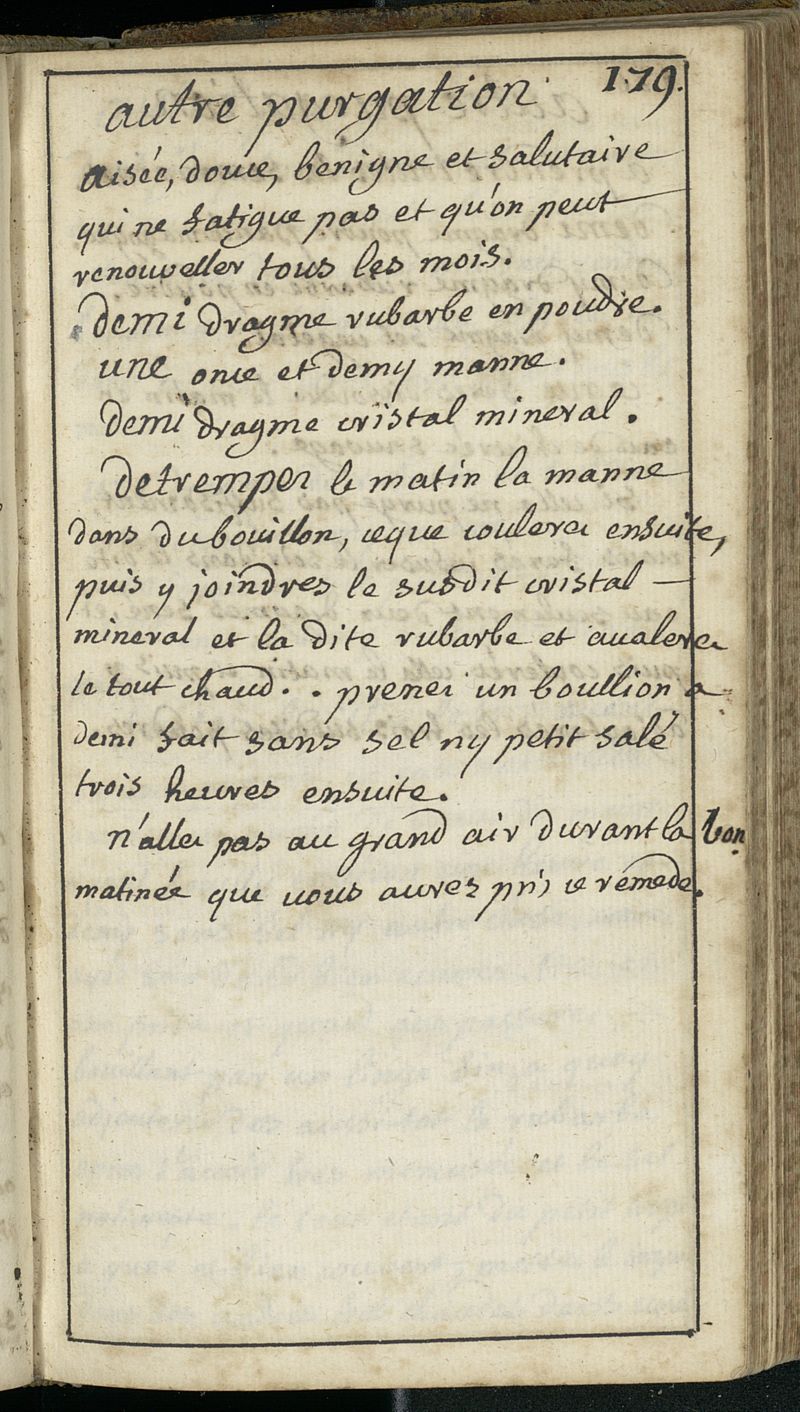 179.
autre purgation
aisée, douce, benigne et salutaire
qui ne fatigue pas et qu'on peut
renouveller tous les mois.
demi dragme rubarbe en poudre.
une once et demy manne.
demi dragme cristal mineral.
detremper le matin la manne
dans du bouillon, ce que coulerez ensuite,
puis y joindres le susdit cristal —
mineral et la dite rubarbe et avalerez
le tout chaud. . prenez un boullion a
demi fait sans sel ny petit salé
trois heures ensuite.
n'allez pas au grand air durant la
matinée que vous aurez pris ce remede.
bon